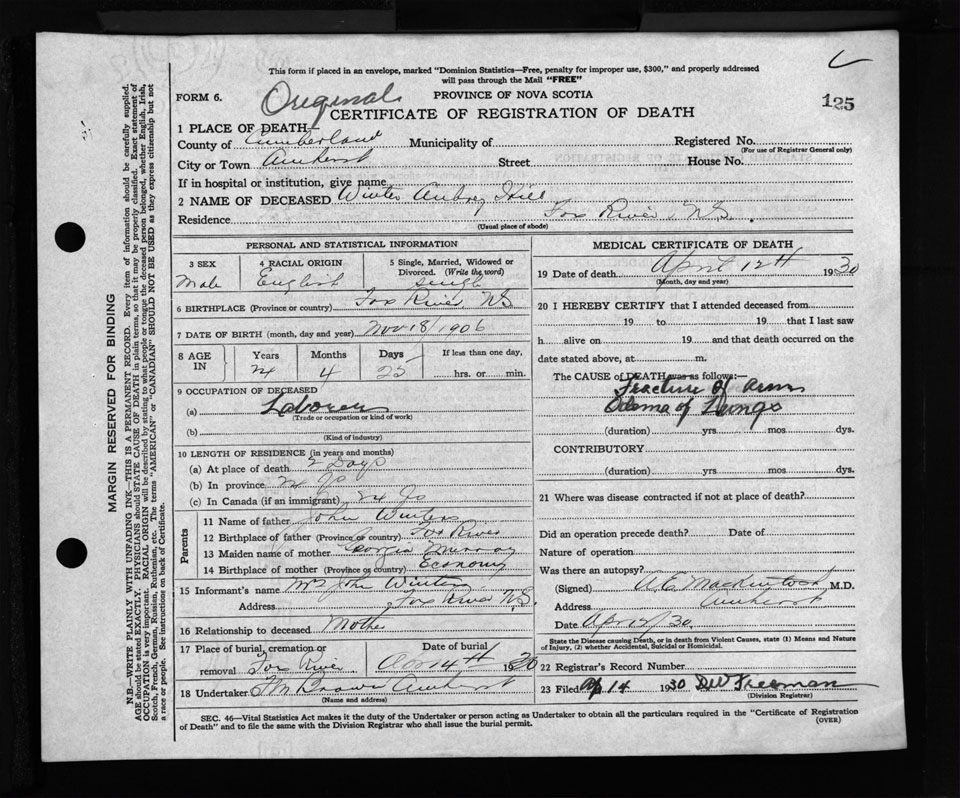 This form if placed in an envelope, marked "Dominion Statistics—Free, penalty for improper use, $300," and properly addressed
will pass through the Mail "FREE"
FORM 6.
Original
PROVINCE OF NOVA SCOTIA
125
CERTIFICATE OF REGISTRATION OF DEATH
1 PLACE OF DEATH—
County of Cumberland Municipality of Registered No.
(For use of Registrar General only)
City or Town Amherst Street House No.
If in hospital or institution, give name
2 NAME OF DECEASED Winter Aubrey
Residence Fox River, N.S.
(Usual place of abode)
PERSONAL AND STATISTICAL INFORMATION
3 SEX
Male
4 RACIAL ORIGIN
English
5 Single, Married, Widowed or
Divorced. (Write the word)
Single
6 BIRTHPLACE (Province or country) Fox River NS
7 DATE OF BIRTH (month, day and year) Nov 18/1906
8 AGE IN
Years Months Days If less than one day,
24 4 25 hrs. or min.
9 OCCUPATION OF DECEASED
(a) Laborer
(Trade or occupation or kind of work)
(b)
(Kind of industry)
10 LENGTH OF RESIDENCE (in years and months)
(a) At place of death 2 Days
(b) In province 24
(c) In Canada (if an immigrant) 24
Parents
11 Name of father John Winters
12 Birthplace of father (Province or country) Fox River
13 Maiden name of mother Georgia Murray
14 Birthplace of mother (Province or country) Economy
15 Informant's name Mrs John Winters
Address Fox River N.S.
16 Relationship to deceased Mother
17 Place of burial, cremation or Date of burial
removal Fox River Apr 14th 1930
18 Undertaker Brown Amherst
(Name and address)
MEDICAL CERTIFICATE OF DEATH
19 Date of death April 12th 1930
(Month, day and year)
20 I HEREBY CERTIFY that I attended deceased from
19 to 19 that I last saw
h alive on 19 and that death occurred on the
date stated above, at m.
The CAUSE of DEATH was as follows:—
Fracture of Arm
Odema of Lungs
(duration) yrs mos dys.
CONTRIBUTORY
(duration) yrs mos dys.
21 Where was disease contracted if not at place of death?
Did an operation precede death? Date of
Nature of operation
Was there an autopsy?
(Signed) A.E. Mackintosh M.D.
Address Amherst
Date Apr 12/30
State the Disease causing Death, or in death from Violent Causes, state (1) Means and Nature
of Injury, (2) whether Accidental, Suicidal or Homicidal.
22 Registrar's Record Number
23 Filed Ap 14 1930 DW Freeman
(Division Registrar)
SEC. 46—Vital Statistics Act makes it the duty of the Undertaker or person acting as Undertaker to obtain all the particulars required in the "Certificate of Registration
of Death" and to file the same with the Division Registrar who shall issue the burial permit.
(OVER)
MARGIN RESERVED FOR BINDING
N.B.—WRITE PLAINLY WITH UNFADING INK—THIS IS A PERMANENT RECORD. Every item of information should be carefully supplied.
AGE should be stated EXACTLY. PHYSICIANS should STATE CAUSE OF DEATH in plain terms, so that it may be properly classified. Exact statement of
OCCUPATION is very important. RACIAL ORIGIN will be described by stating to what people or tongue the deceased person belonged, whether English, Irish,
Scotch, French, German, Russian, Ruthenian, etc. The terms "AMERICAN" or "CANADIAN" SHOULD NOT BE USED as they express citizenship but not
a race or people. See instructions on back of Certificate.